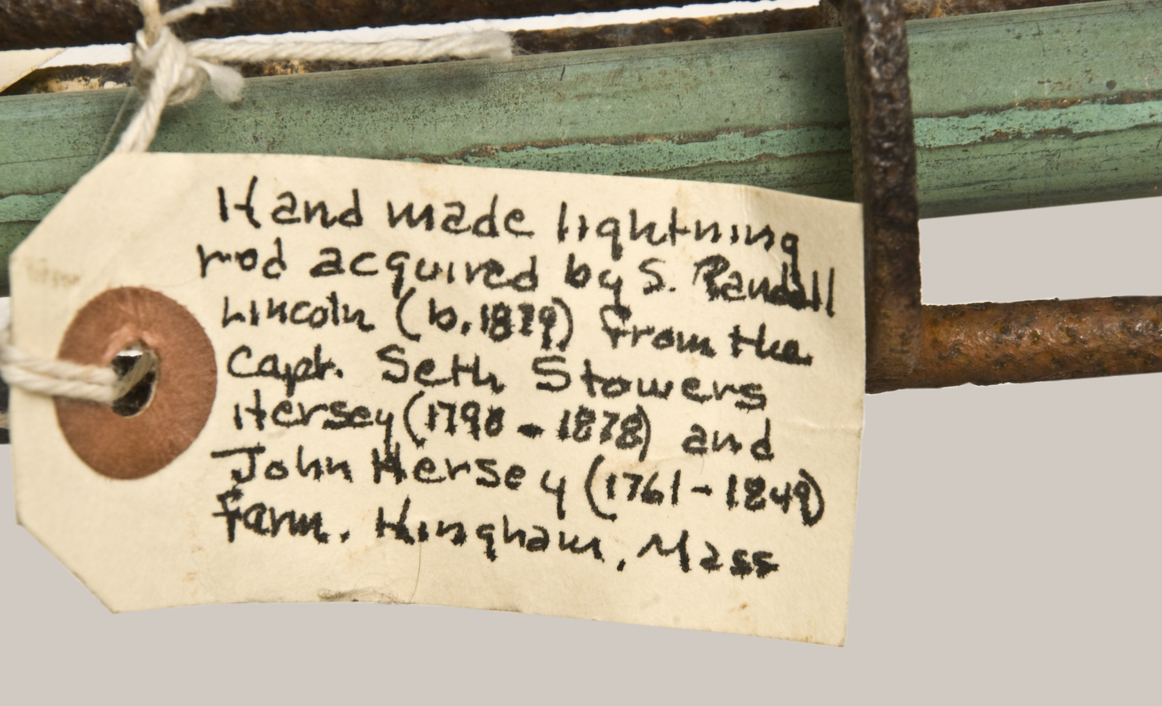 Hand made lightning
rod acquired by S. Randall
Lincoln (b. 1879) from the
Capt. Seth Stowers
Hersey (1798 - 1878) and
John Hersey (1761 - 1849)
farm. Hingham, Mass